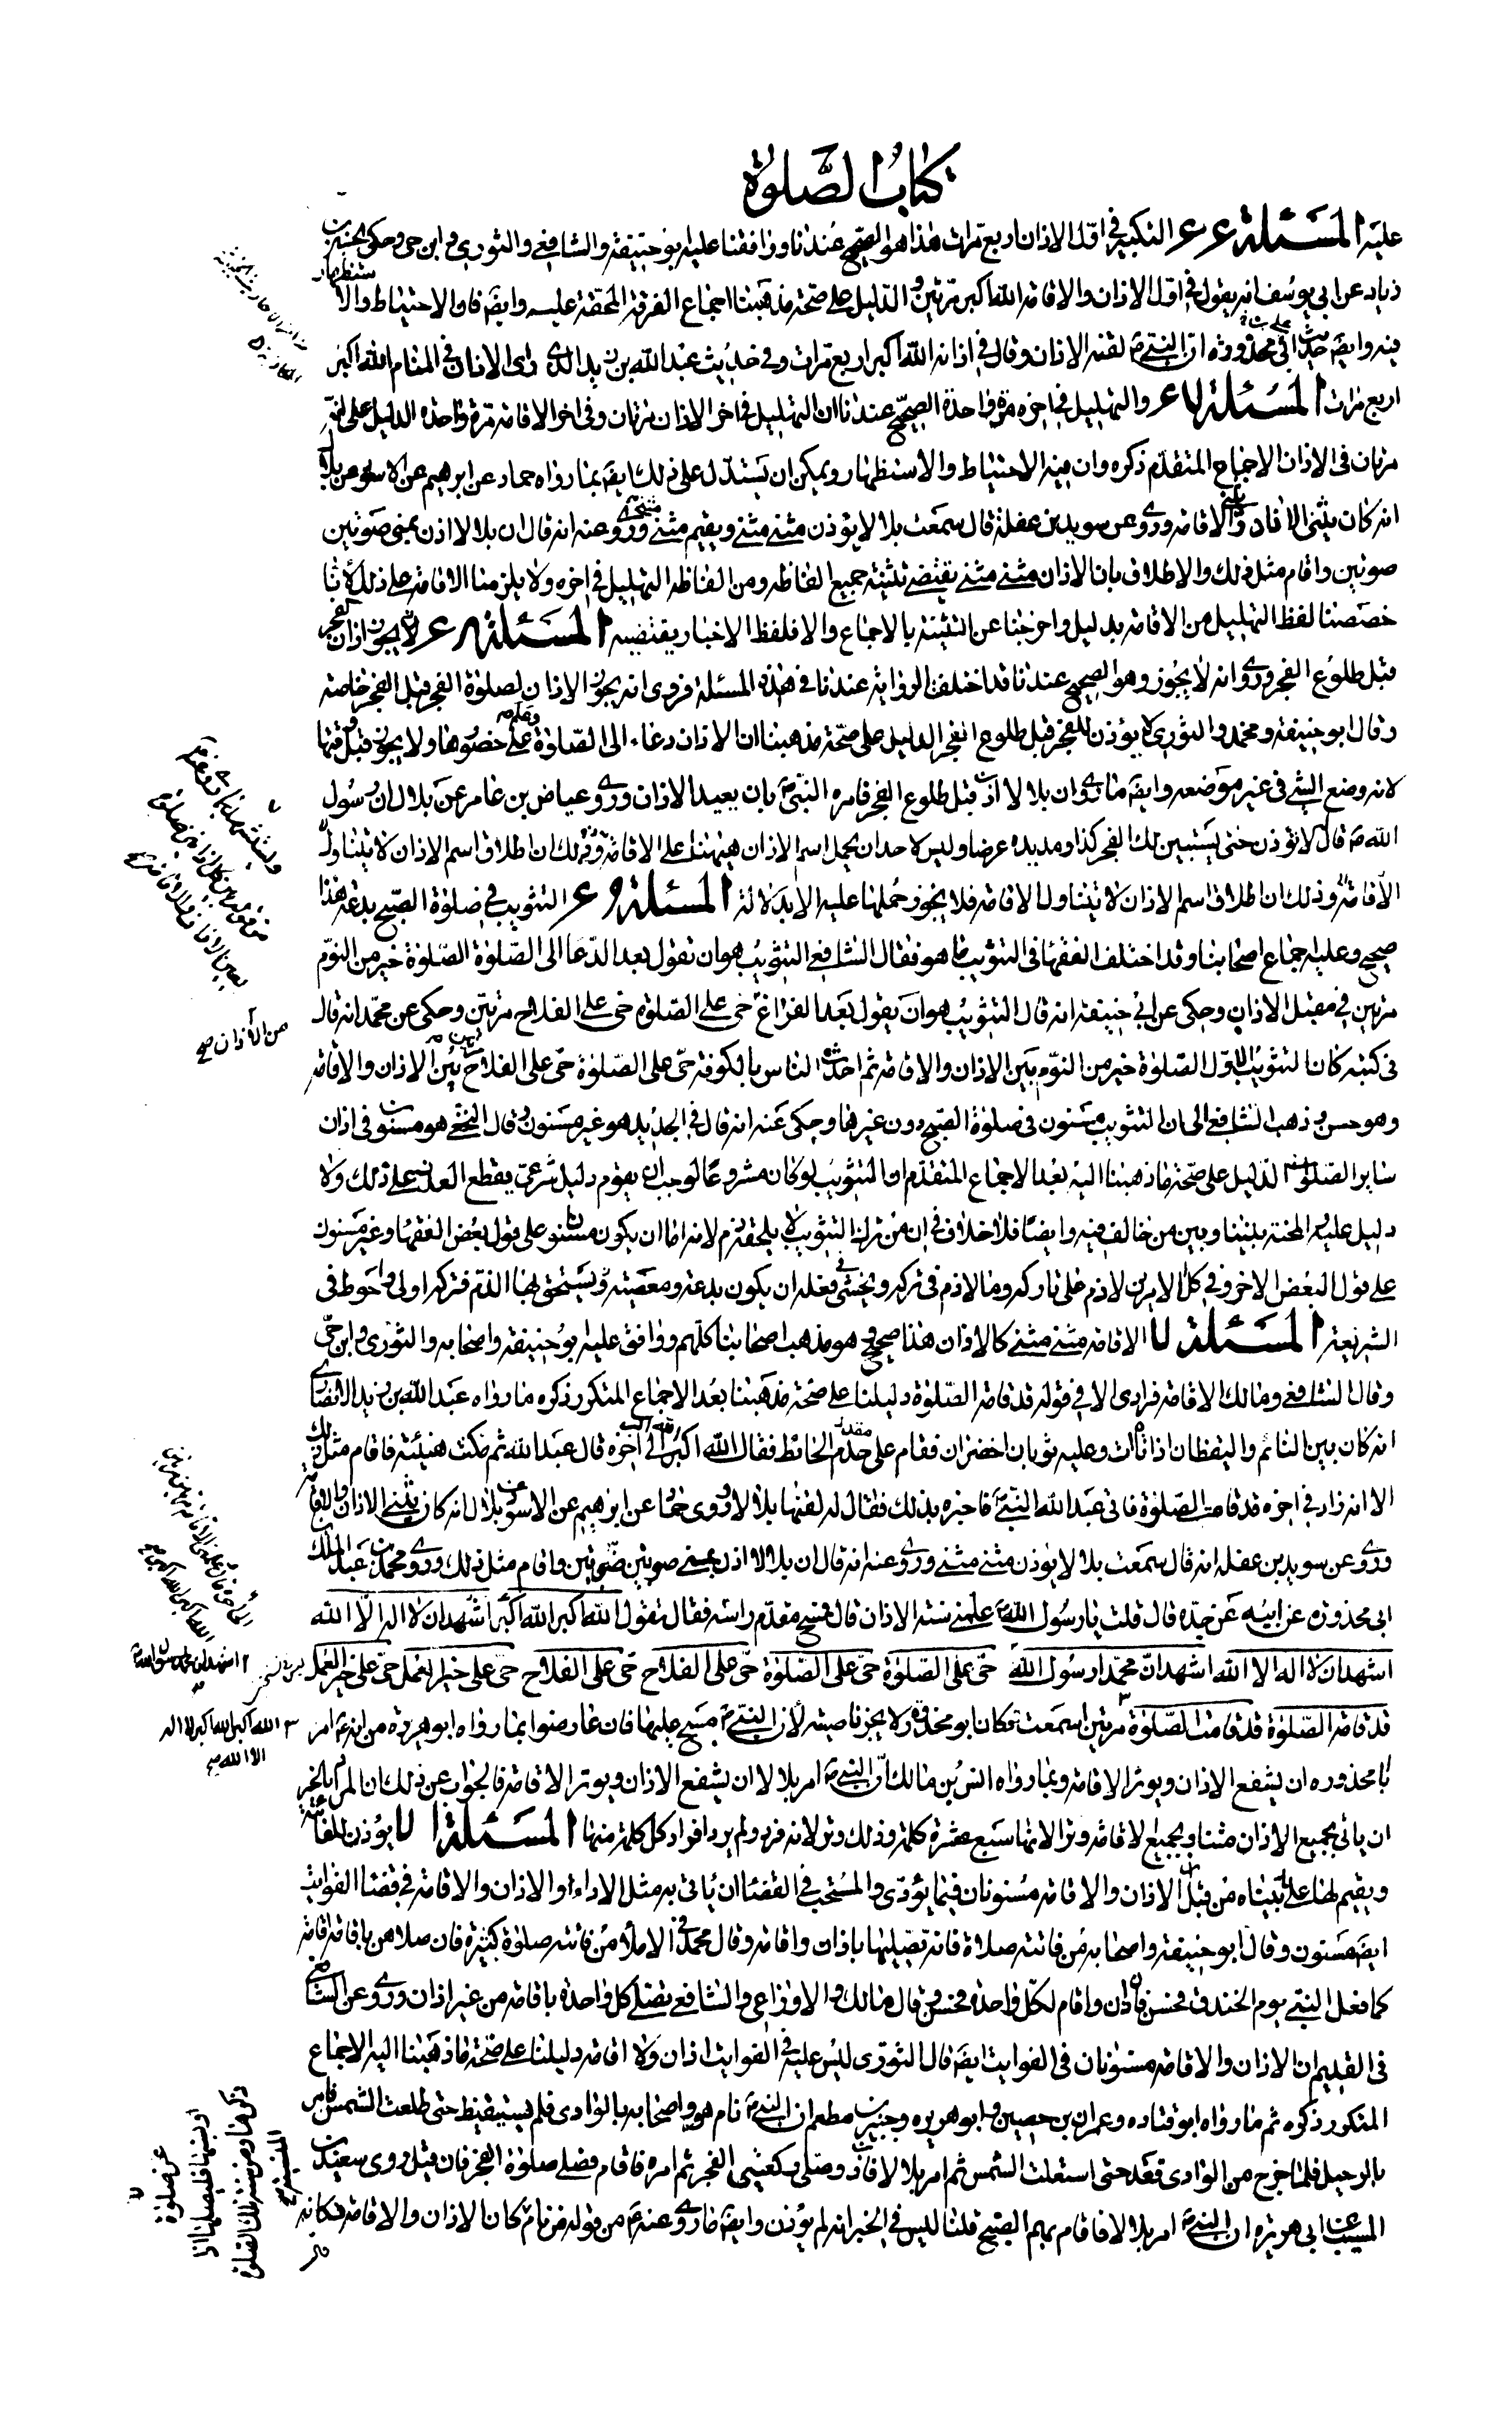 كتاب الصلوة
عليه المسئلة ٤٤ التكبير في اول الاذان اربع مرات هذا هو الصحيح عندنا ووافقنا عليه ابو حنيفة والشافعي والثوري وابن حي وحكى الحسن بن
زياد عن ابي يوسف انه يقول في اول الاذان والاقامة الله اكبر مرتين والدليل على صحة مذهبنا اجماع الفرقة المحقة عليه وايضا فان الاحتياط والاستظهار
فيه وايضا حديث ابي محذورة ان النبي ص لقنه الاذان وقال في اذانه الله اكبر اربع مرات وفي حديث عبد الله بن زيد الذي راى الاذان في المنام الله اكبر
اربع مرات المسئلة والتهليل في اخره مرة واحدة الصحيح عندنا ان التهليل في اخر الاذان مرتان وفي اخر الاقامة مرة واحدة الدليل على انه
مرتان في الاذان الاجماع المتقدم ذكره وان فيه الاحتياط والاستظهار ويمكن ان يستدل على ذلك ايضا بما رواه حماد عن ابرهيم عن الاسود عن بلال
انه كان يثني الاذان والاقامة وروي عن سويد بن غفلة قال سمعت بلالا يؤذن مثنى مثنى ويقيم مثنى وروي عنه انه قال ان بلالا اذن بمنى صوتين
صوتين واقام مثل ذلك والاطلاق بان الاذان مثنى مثنى يقتضي تثنية جميع الفاظه ومن الفاظه التهليل في اخره ولا يلزمنا الاقامة على ذلك لانا
خصصنا لفظ التهليل من الاقامة بدليل واخرجنا عن التثنية بالاجماع والا فلفظ الاخبار يقتضيه المسئلة لا يجوز اذان الفجر
قبل طلوع الفجر وروي انه لا يجوز وهو الصحيح عندنا قد اختلف الرواية عندنا في هذه المسئلة فروى انه يجوز الاذان لصلوة الفجر قبل الفجر خاصة
وقال ابو حنيفة ومحمد والثوري لا يؤذن للفجر قبل طلوع الفجر الدليل على صحة مذهبنا ان الاذان دعاء الى الصلوة وعلم على حضورها ولا يجوز قبل وقتها
لانه وضع الشئ في غير موضعه وايضا ما روي ان بلالا اذن قبل طلوع الفجر فامره النبي ص بان يعيد الاذان وروي عياض بن عامر عن بلال ان رسول
الله ص قال لا تؤذن حتى يستبين لك الفجر كذا ومد يده عرضا وليس لاحد ان يحمل اسم الاذان هيهنا على الاقامة وذلك ان اطلاق اسم الاذان لا يتناول
الاقامة وذلك ان اطلاق اسم الاذان لا يتناول الاقامة فلا يجوز حملها عليه الا بدلالة المسئلة التثويب في صلوة الصبح بدعة هذا
صحيح وعليه اجماع اصحابنا وقد اختلف الفقهاء في التثويب ما هو فقال الشافعي التثويب هو ان تقول بعد الدعا الى الصلوة الصلوة خير من النوم
مرتين في مقبل الاذان وحكى عن ابي حنيفة انه قال التثويب هو ان يقول بعد الفراغ حي على الصلوة حي على الفلاح مرتين وحكى عن محمد انه قال
في كتبه كان التثويب الاول الصلوة خير من النوم بين الاذان والاقامة ثم احدث الناس بالكوفة حي على الصلوة حي على الفلاح مرتين بين الاذان والاقامة
وهو حسن وذهب الشافعي الى ان التثويب مسنون في صلوة الصبح دون غيرها وحكى عنه انه قال في الجديد هو غير مسنون وقال النخعي هو مسنون في اذان
ساير الصلوات الدليل على صحة ما ذهبنا اليه بعد الاجماع المتقدم ان التثويب لو كان مشروعا لوجب ان يقوم دليل شرعي يقطع العذر على ذلك ولا
دليل عليه المحنة بيننا وبين من خالف فيه وايضا فلا خلاف في ان من ترك التثويب لا يلحقه ذم لانه اما ان يكون مسنونا على قول بعض الفقهاء وغير مسنون
على قول البعض الاخر وفي كل الامرين لا ذم على تاركه وما لا ذم في تركه ويخشى في فعله ان يكون بدعة ومعصية ويستحق بها الذم فتركه اولى واحوط في
الشريعة المسئلة الاقامة مثنى مثنى كالاذان هذا صحيح وهو مذهب اصحابنا كلهم ووافق عليه ابو حنيفة واصحابه والثوري وابن حي
وقال الشافعي ومالك الاقامة فرادى الا في قوله قد قامت الصلوة دليلنا على صحة مذهبنا بعد الاجماع المتكرر ذكره ما رواه عبد الله بن زيد الانصاري
انه كان بين النائم واليقظان اذ اتاه ات وعليه ثوبان اخضران فقام على جذم الحائط فقال الله اكبر الله اكبر الى اخره قال عبد الله ثم مكث هنيئة فاقام مثل ذلك
الا انه زاد في اخره قد قامت الصلوة فاتى عبد الله النبي ص فاخبره بذلك فقال له لقنها بلالا وروى حماد عن ابرهيم عن الاسود عن بلال انه كان يثني الاذان والاقامة
وروي عن سويد بن غفلة انه قال سمعت بلالا يؤذن مثنى مثنى وروي عنه انه قال ان بلالا اذن بمنى صوتين صوتين واقام مثل ذلك وروي محمد بن عبد الملك
ابي محذورة عن ابيه عن جده قال قلت يا رسول الله ص علمني سنة الاذان قال فمسح مقدم راسه فقال تقول الله اكبر الله اكبر اشهد ان لا اله الا الله
اشهد ان لا اله الا الله اشهد ان محمدا رسول الله حي على الصلوة حي على الصلوة حي على الفلاح حي على الفلاح حي على خير العمل حي على خير العمل
قد قامت الصلوة قد قامت الصلوة مرتين اسمعت فكان ابو محذورة لا يجز ناصيته لان النبي ص مسح عليها فان عارضوا بما رواه ابو هريرة من انه ع امر
ابا محذورة ان يشفع الاذان ويوتر الاقامة وبما رواه انس بن مالك ان النبي ص امر بلالا ان يشفع الاذان ويوتر الاقامة فالجواب عن ذلك ان المراد بالخبر
ان ياتي بجميع الاذان مثنا وبجميع الاقامة وترا لانها سبع عشرة كلمة وذلك وتر لانه فرد ولم يرد افراد كل كلمة منها المسئلة يؤذن للفائتة
ويقيم لها على ما بيناه من قبل ان الاذان والاقامة مسنونان فيما يؤدى والمستحب في القضا ان ياتي به مثل الاداء والاذان والاقامة في قضا الفوايت
ايضا مسنون وقال ابو حنيفة واصحابه من فاتته صلاة فانه يصليها باذان واقامة وقال محمد في الاملا من فاتته صلوة كثيرة فان صلاهن باقامة اقامة
كما فعل النبي يوم الخندق فحسن وان اذن واقام لكل واحدة فحسن وقال مالك والاوزاعي والشافعي يصلى كل واحدة باقامة من غير اذان وروي عن الشافعي
في القديم ان الاذان والاقامة مسنونان في الفوايت ايضا قال الثوري ليس عليه في الفوايت اذان ولا اقامة دليلنا على صحة ما ذهبنا اليه الاجماع
المتكرر ذكره ثم ما رواه ابو قتادة وعمران بن حصين وابو هريرة وجبير بن مطعم ان النبي ص نام هو واصحابه بالوادي فلم يستيقظ حتى طلعت الشمس فامر
بالرحيل فلما خرج من الوادي قعد حتى استعلت الشمس ثم امر بلالا فاذن وصلى ركعتي الفجر ثم امره فاقام فصلى صلوة الفجر فان قيل روى سعيد بن
المسيب عن ابي هريرة ان النبي ص امر بلالا فاقام بهم الصبح قلنا ليس في الخبر انه لم يؤذن وايضا ما روي عنه ع من قوله من نام كان الاذان والاقامة فكانه
من الاذان صح
اشهد ان محمدا رسول الله
الله اكبر الله اكبر لا اله
الا الله صح
عن صلوة
او نسيها فليصلها اذا
ذكرها ومن سنة تلك الصلوة